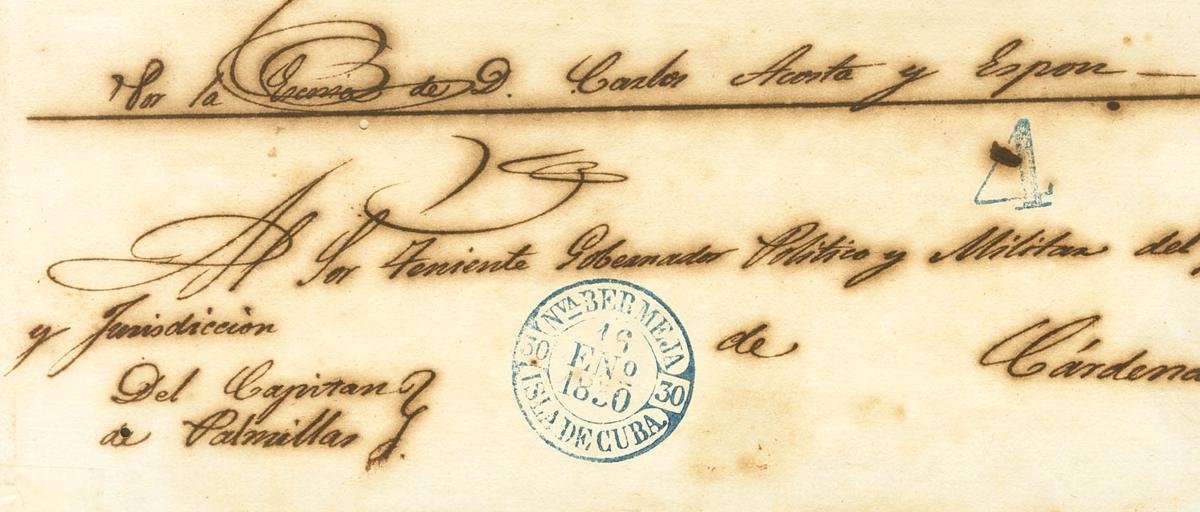 Por la Escssa de D. Carlos Acosta y Espon —
4
Al Sor Teniente Gobernador Politico y Militar del
y Jurisdiccion de Cárdena
Del Capitan
de Palmillas
NVA BERMEJA
16
ENº
1850
30 30
ISLA DE CUBA